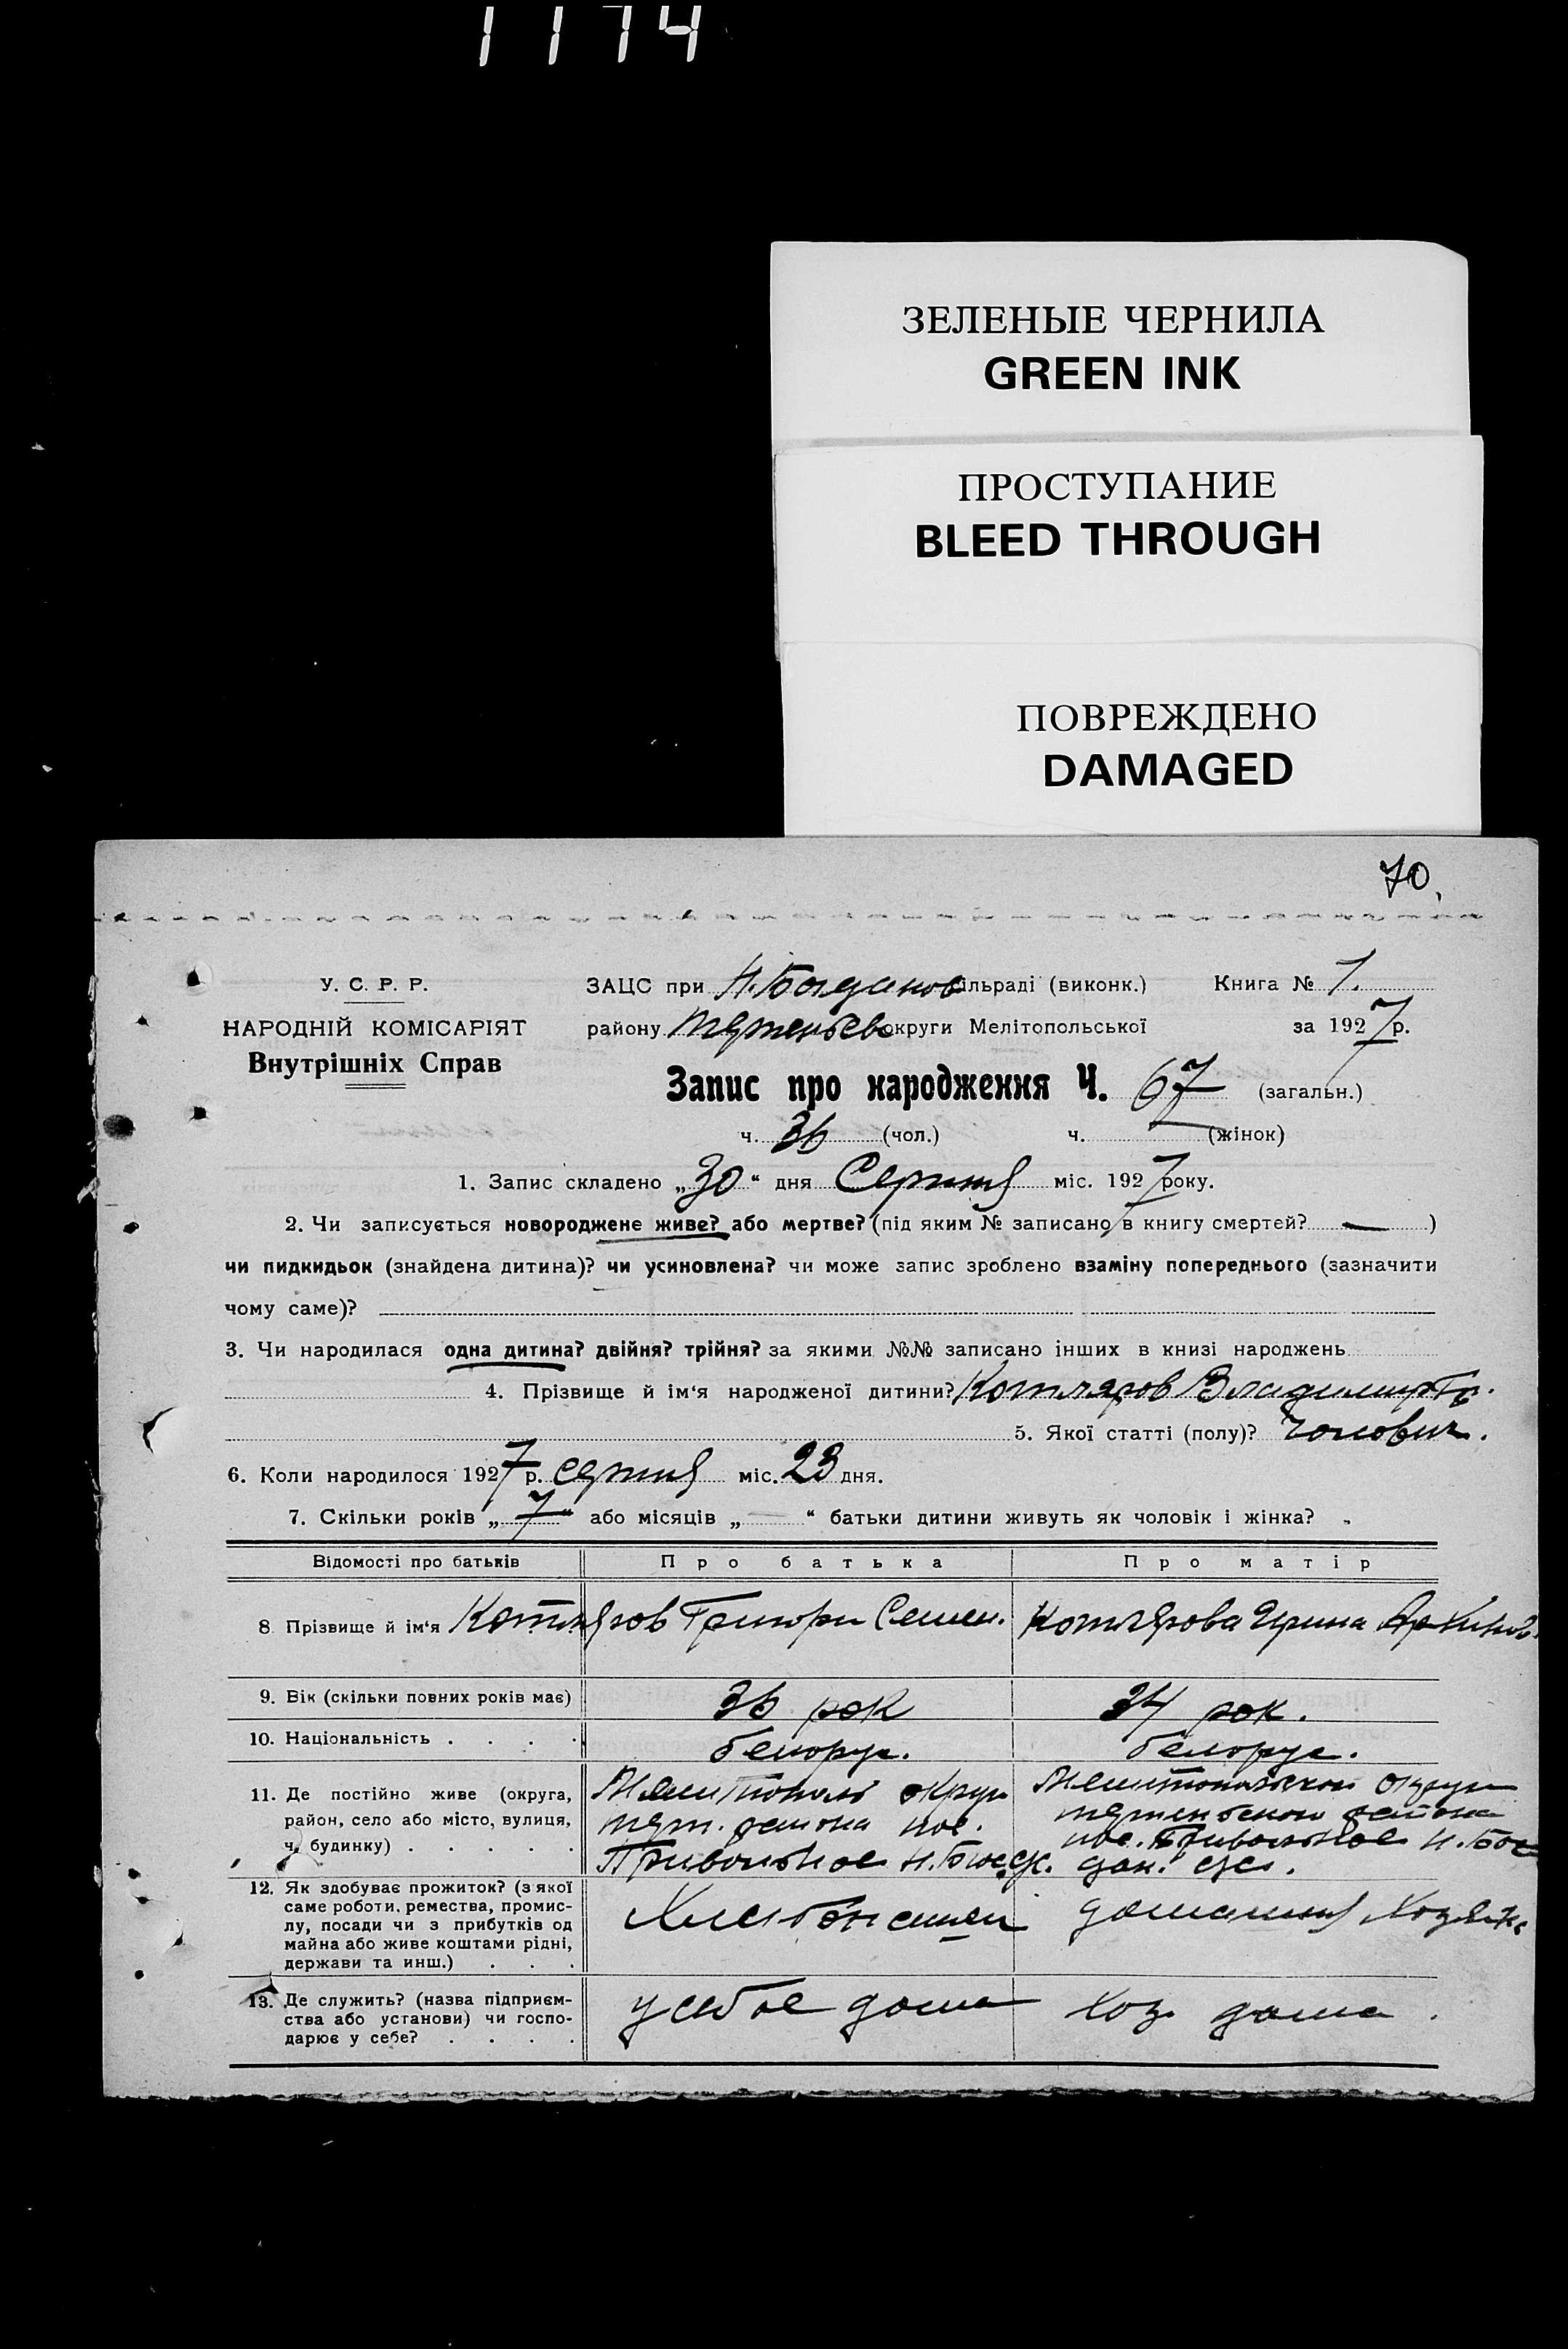 1174
ЗЕЛЕНЫЕ ЧЕРНИЛА
GREEN INK
ПРОСТУПАНИЕ
BLEED THROUGH
ПОВРЕЖДЕНО
DAMAGED
70.
У. С. Р. Р.
НАРОДНІЙ КОМІСАРІЯТ
Внутрішніх Справ
ЗАЦС при Н. Богданов ільраді (виконк.) Книга № 1.
району округи Мелітопольської за 1927 р.
Запис про народження Ч. 67 (загальн.)
ч. 36 (чол.) ч. (жінок)
1. Запис складено „30“ дня Серпня міс. 1927 року.
2. Чи записується новороджене живе? або мертве? (під яким № записано в книгу смертей? — )
чи пидкидьок (знайдена дитина)? чи усиновлена? чи може запис зроблено взаміну попереднього (зазначити
чому саме)?
3. Чи народилася одна дитина? двійня? трійня? за якими №№ записано інших в книзі народжень
4. Прізвище й ім‘я народженої дитини? Котляров Владимир Гр.
5. Якої статті (полу)? Чоловіч.
6. Коли народилося 1927 р. серпня міс. 23 дня.
7. Скільки років „7“ або місяців „—“ батьки дитини живуть як чоловік і жінка?
Відомості про батьків Про батька Про матір
8 Прізвище й ім‘я Котляров Григори Семен. Котлярова Ирина
9. Вік (скільки повних років має) 36 рок 34 рок.
10. Національність . . . . белорус. белорус.
11. Де постійно живе (округа,
район, село або місто, вулиця,
ч. будинку) . . . . .
Мелитополь округ
района пос.
Привольное Н. Богд.
Мелитопольской округи
района
пос. Привольное Н. Бог
дан.
12. Як здобуває прожиток? (з якої
саме роботи, ремества, промис-
лу, посади чи з прибутків од
майна або живе коштами рідні,
держави та инш.) . . .
домашня
13. Де служить? (назва підприєм-
ства або установи) чи госпо-
дарює у себе? . . . .
у себе дома
хоз. дома.